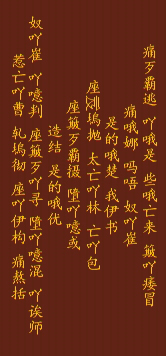 痛歹覇逃 吖哦是 些哦亡来 簸吖瘘冒
痛哦娜 吗唔 奴吖崔
是的哦楚 我伊书
座坞抛 太亡吖林 亡吖包
座簸歹覇摄 墮吖噫或
造结 是的哦优
奴吖崔 吖噫判 座簸歹吖寻 墮吖噫混 吖诶师
惹亡吖曹 乳坞彻 座吖伊构 痛熬括